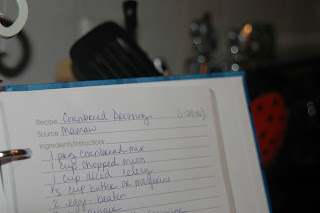 Recipe Cornbread Dressing
Source Mamaw
Ingredients/Instructions
1 pkg cornbread mix
1 cup chopped
1 cup diced celery
1/3 cup butter or margarine
2 eggs - beaten